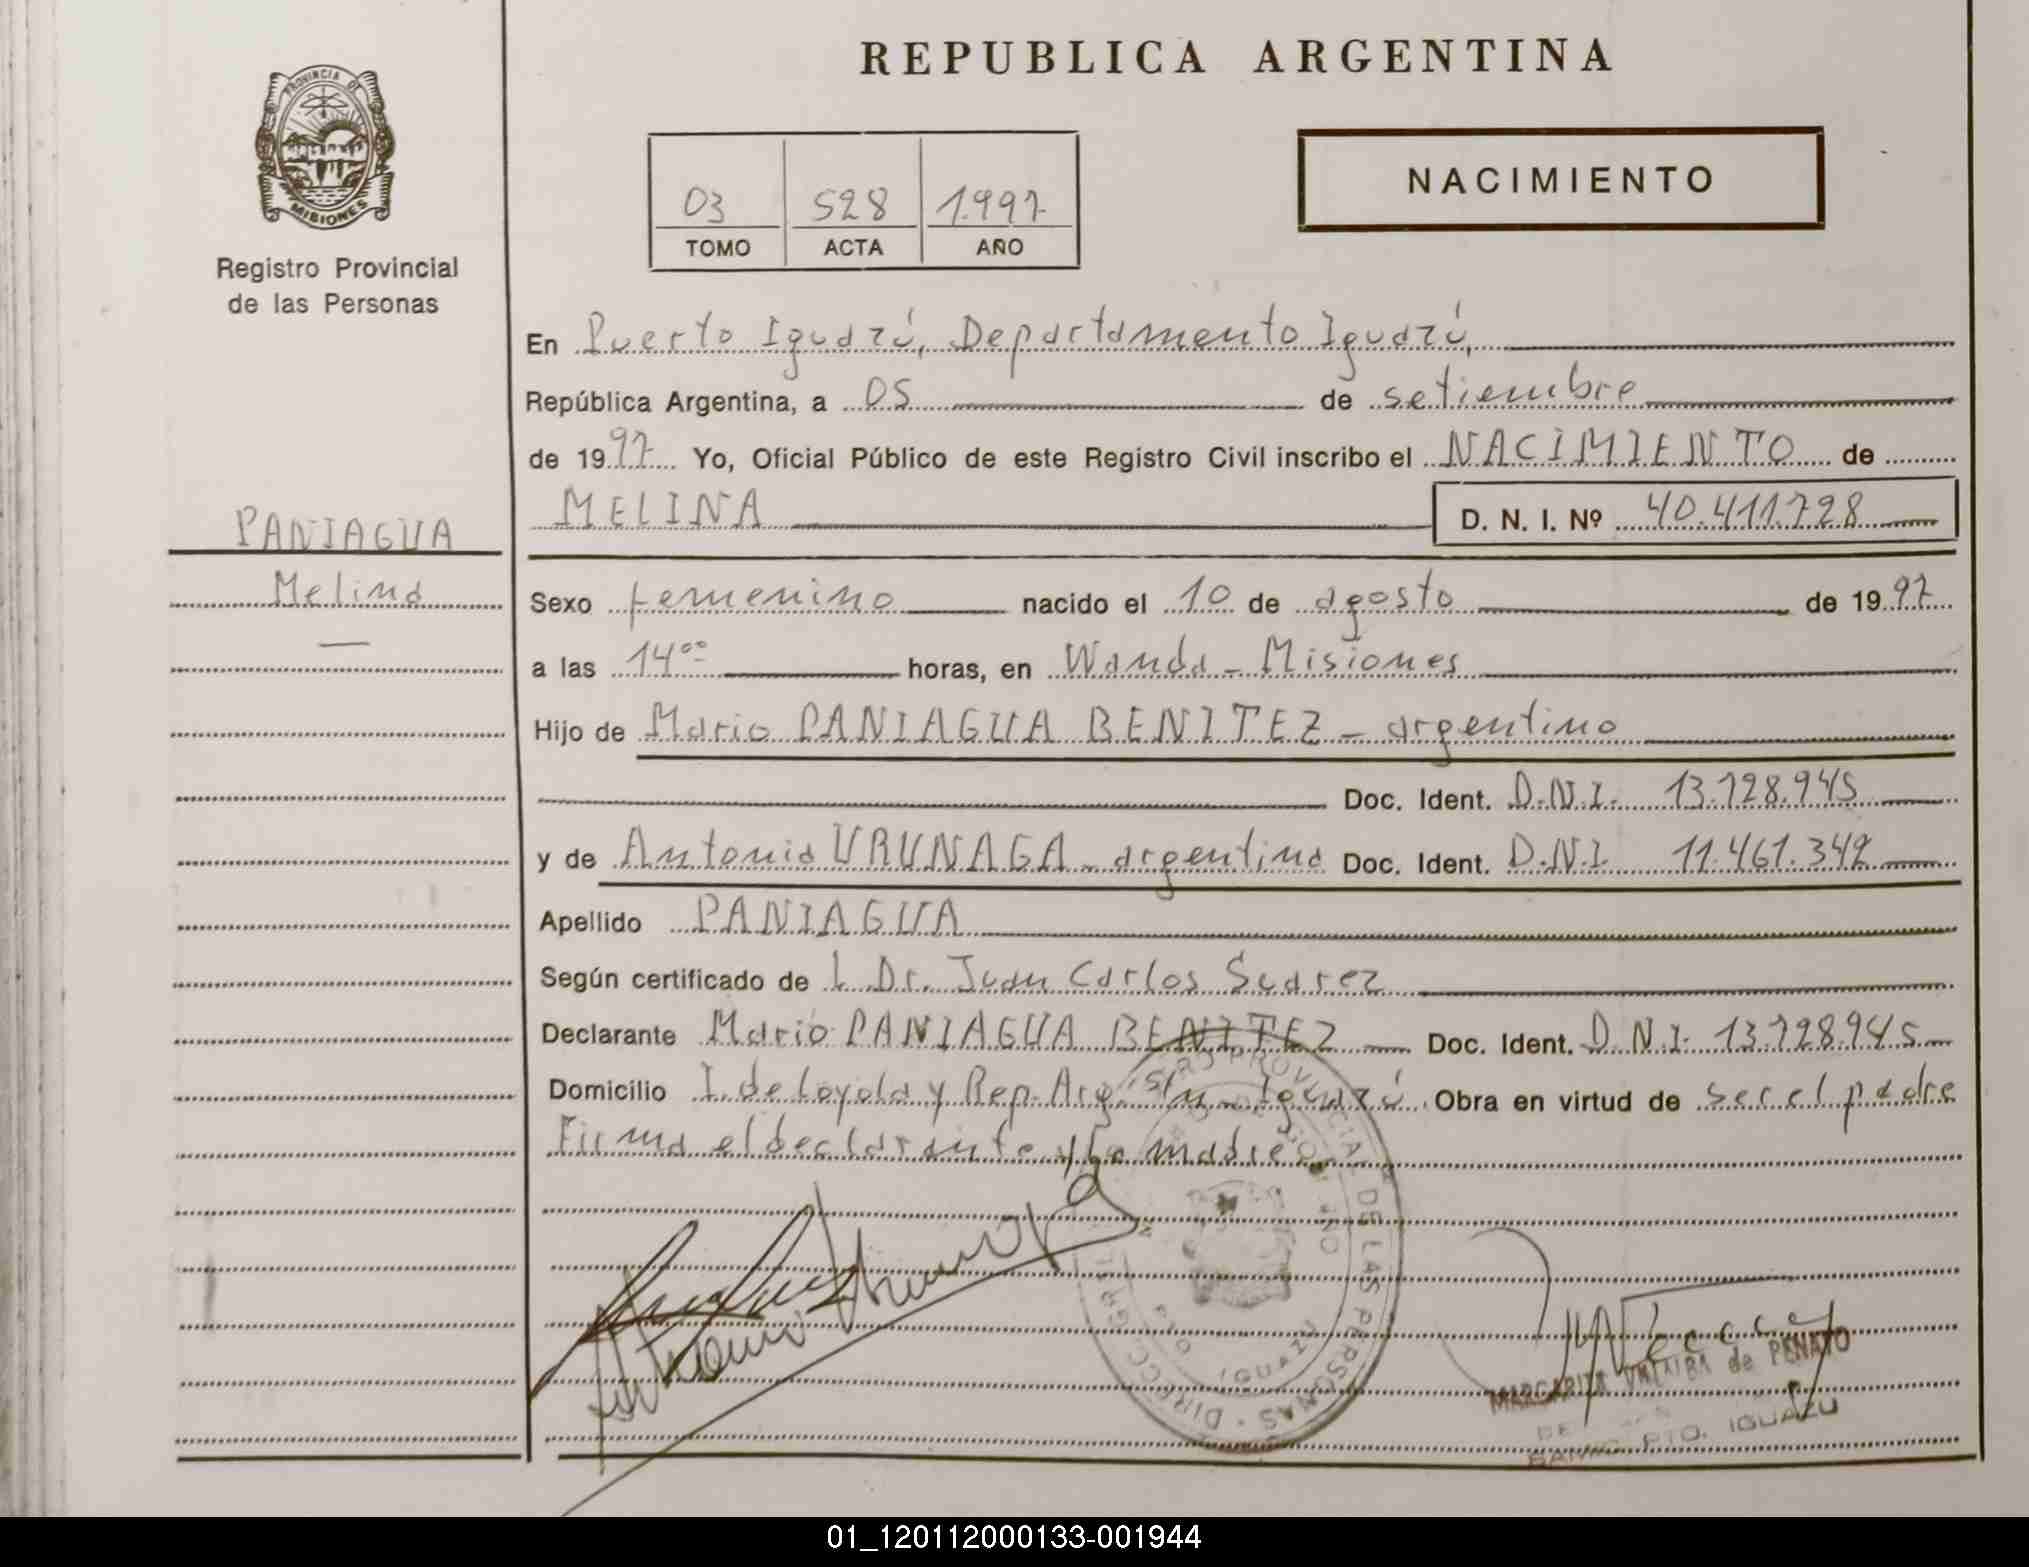 REPUBLICA ARGENTINA
PROVINCIA DE
MISIONES
Registro Provincial
de las Personas
NACIMIENTO
03 528 1.997
TOMO ACTA AÑO
En Puerto Iguazú, Departamento Iguazú,
República Argentina, a 05 de setiembre
de 1997 Yo, Oficial Público de este Registro Civil inscribo el NACIMIENTO de
MELINA D. N. I. Nº 40.411.728
PANIAGUA
Melina
Sexo femenino nacido el 10 de agosto de 1997
a las 14ºº horas, en Wanda - Misiones
Hijo de Mario PANIAGUA BENITEZ - argentino
Doc. Ident. D.N.I. 13.728.945
y de Antonia URUNAGA - argentina Doc. Ident. D.N.I. 11.461.342
Apellido PANIAGUA
Según certificado de L Dr. Juan Carlos Suarez
Declarante Mario PANIAGUA BENITEZ Doc. Ident. D.N.I. 13.728.945
Domicilio I. de Loyola y Rep. Arg. S/n - Iguazú Obra en virtud de ser el padre
Firma el declarante y la madre
PROVINCIAL DE LAS PERSONAS
IGUAZU
MARGARITA VILLALBA de PENAYO
PTO. IGUAZU
01_120112000133-001944